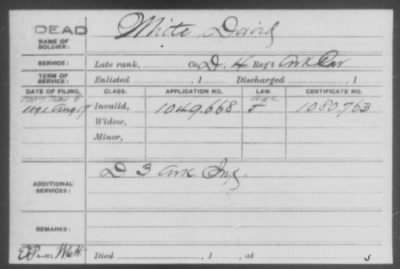 DEAD
NAME OF SOLDIER: White, David
SERVICE: Late rank, Co D. 4 Reg't Ark Cav
TERM OF SERVICE: Enlisted , 1 Discharged , 1
DATE OF FILING. CLASS. APPLICATION NO. LAW. CERTIFICATE NO.
1891 Aug 17 Invalid, 1049,668 J 1080,763
Widow,
Minor,
ADDITIONAL SERVICES: D 3 Ark Inf.
REMARKS:
Died , 1 , at